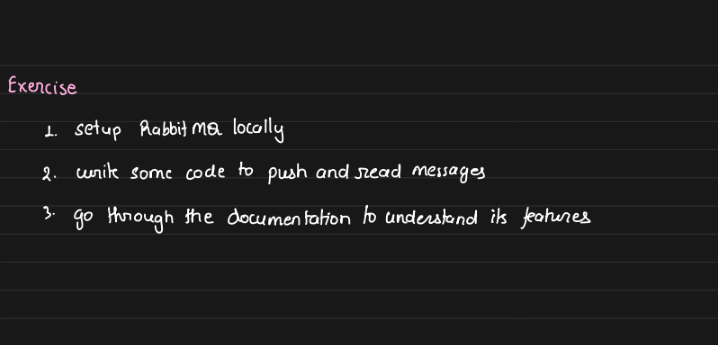 Exercise
1. setup RabbitMQ locally
2. write some code to push and read messages
3. go through the documentation to understand its features